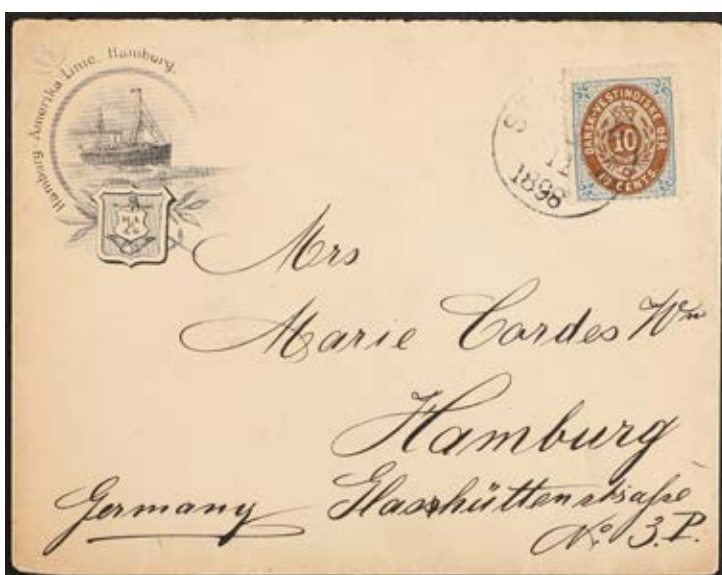 Hamburg-Amerika Linie, Hamburg.
DANSK-VESTINDISKE ØER
10
10 CENTS
1898
Mrs
Marie Cordes Wn
Hamburg
Germany Glashüttenstraße
No. 3. P.